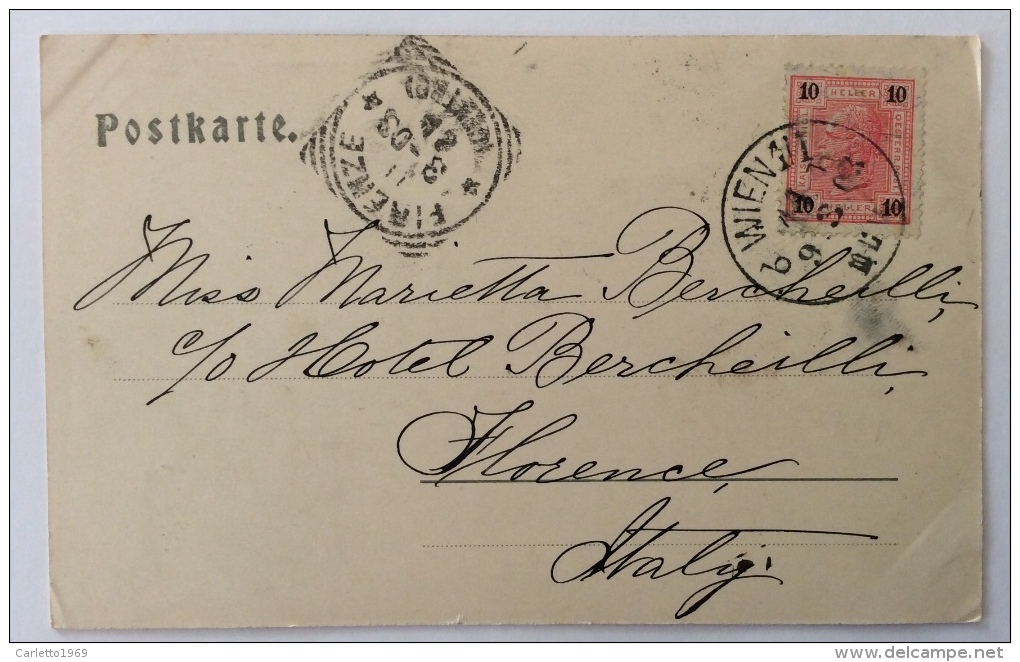 Postkarte.
FIRENZE
10 HELLER 10
10 HELLER 10
WIEN
Miss Marietta Bercheilli,
c/o Hotel Bercheilli,
Florence,
Italy.
Carletto1969
delcampe.net